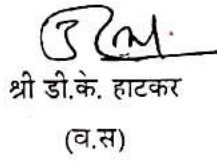 श्री डी.के. हाटकर
(व.स)